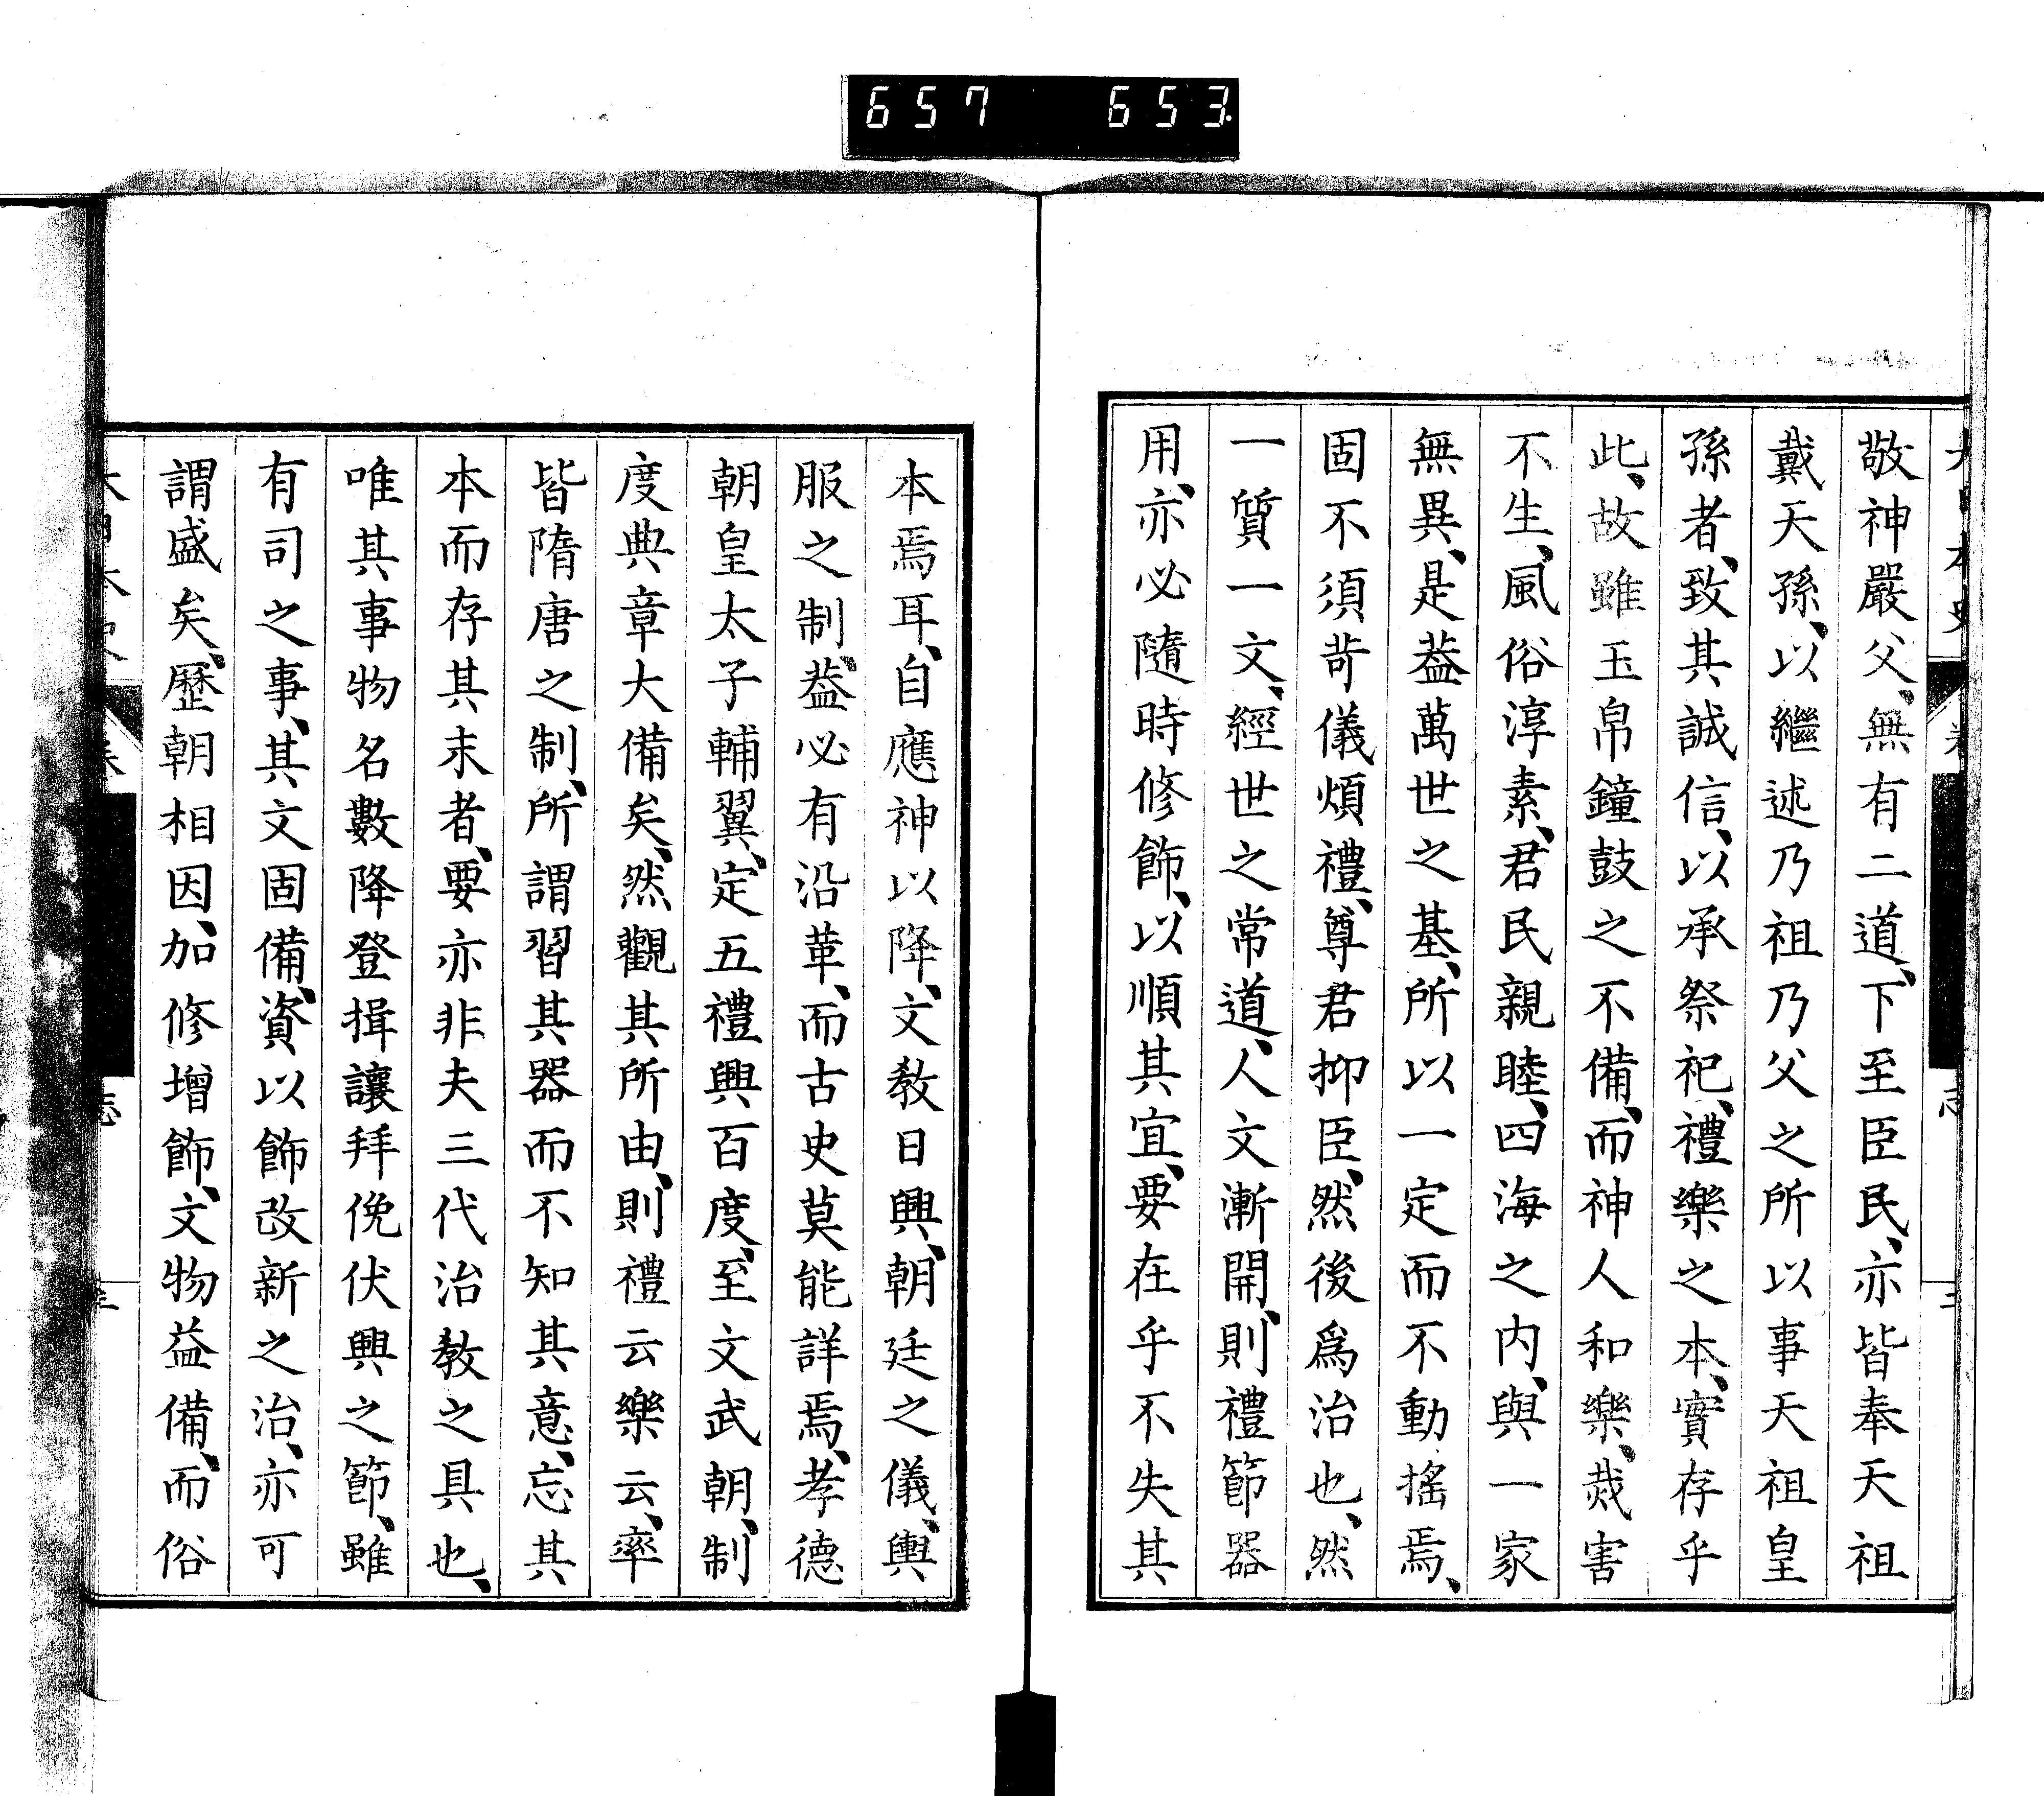 657 653
敬神嚴父、無有二道、下至臣民、亦皆奉天祖
戴天孫、以繼述乃祖乃父之所以事天祖皇
孫者、致其誠信、以承祭祀、禮樂之本、實存乎
此、故雖玉帛鐘鼓之不備、而神人和樂、烖害
不生、風俗淳素、君民親睦、四海之内、與一家
無異、是葢萬世之基、所以一定而不動搖焉、
固不須苛儀煩禮、尊君抑臣、然後爲治也、然
一質一文、經世之常道、人文漸開、則禮節器
用、亦必隨時修飾、以順其宜、要在乎不失其
本焉耳、自應神以降、文敎日興、朝廷之儀、輿
服之制、葢必有沿革、而古史莫能詳焉、孝德
朝皇太子輔翼、定五禮興百度、至文武朝、制
度典章大備矣、然觀其所由、則禮云樂云、率
皆隋唐之制、所謂習其器而不知其意、忘其
本而存其末者、要亦非夫三代治敎之具也、
唯其事物名數降登揖讓拜俛伏興之節、雖
有司之事、其文固備、資以飾改新之治、亦可
謂盛矣、歷朝相因、加修增飾、文物益備、而俗